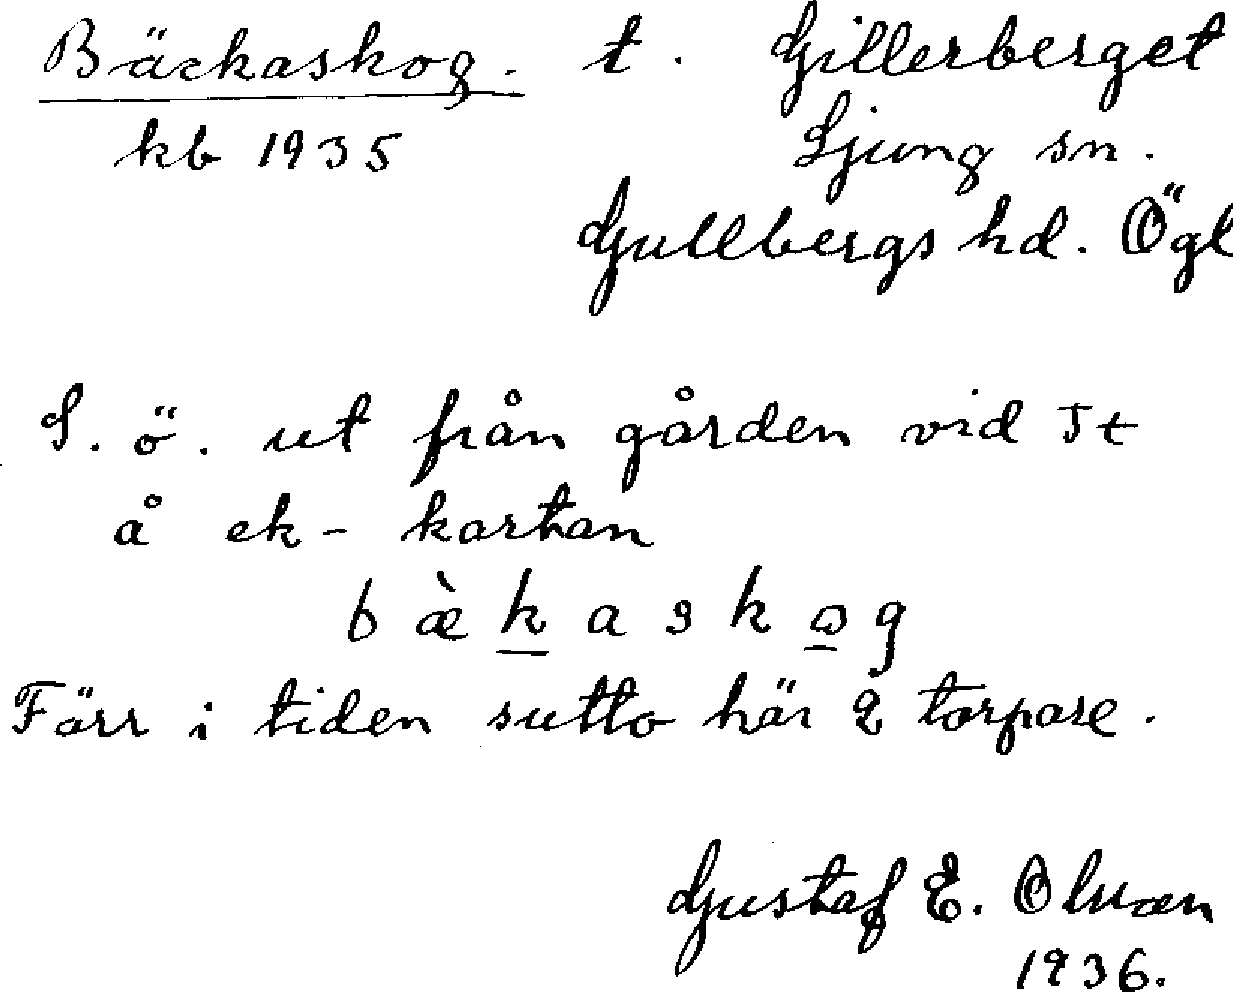 Bäckaskog. t. Gillerberget
kb 1935 Ljung sn.
Gullbergs hd. Ögl
S. ö. ut från gården vid Tt
å ek-kartan
b æ̀ k a s k o g
Förr i tiden sutto här 2 torpare.
Gustaf E.
1936.